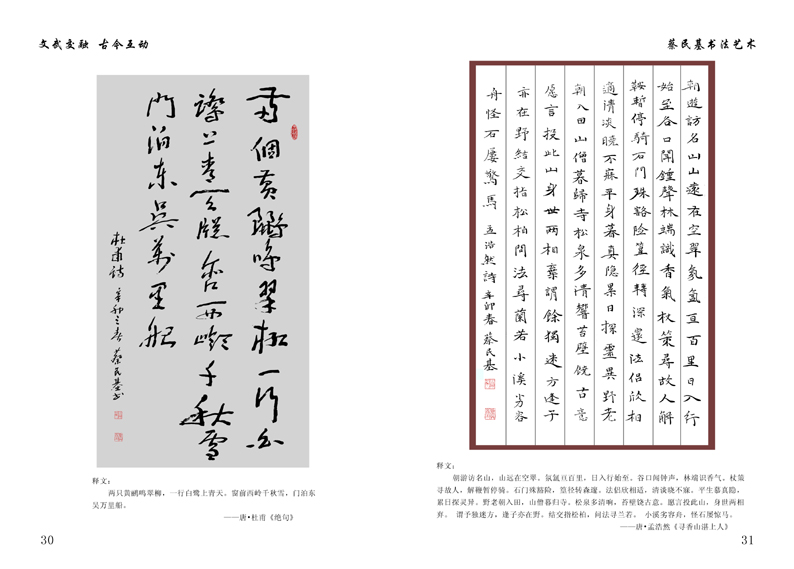 文武交融 古今互动
兩個黃鸝鳴翠柳一行白
鷺上青天牕含西嶺千秋雪
門泊東吳萬里船
杜甫詩 辛卯之春 蔡民基书
释文:
两只黄鹂鸣翠柳,一行白鹭上青天。窗前西岭千秋雪,门泊东
吴万里船。
——唐•杜甫《绝句》
30
蔡民基书法艺术
朝遊訪名山山遠在空翠氛氲亘百里日入行
始至谷口聞鐘聲林端識香氣杖策尋故人解
鞍暫停騎石門殊豁险篁徑轉深邃法侣欣相
適清談曉不寐平身暮真隐累日探靈異野老
朝入田山僧暮歸寺松泉多清響苔壁饶古意
愿言投此山身世兩相棄謂餘獨迷方逢子
亦在野結交指松柏問法尋蘭若小溪劣容
舟怪石屢驚馬 孟浩然詩 辛卯春 蔡民基
释文:
朝游访名山,山远在空翠。氛氲亘百里,日入行始至。谷口闻钟声,林端识香气。杖策
寻故人,解鞭暂停骑。石门殊豁险,篁径转森邃。法侣欣相适,清谈晓不寐。平生慕真隐,
累日探灵异。野老朝入田,山僧暮归寺。松泉多清响,苔壁饶古意。愿言投此山,身世两相
弃。 谓予独迷方,逢子亦在野。结交指松柏,问法寻兰若。 小溪劣容舟,怪石屡惊马。
——唐•孟浩然《寻香山湛上人》
31